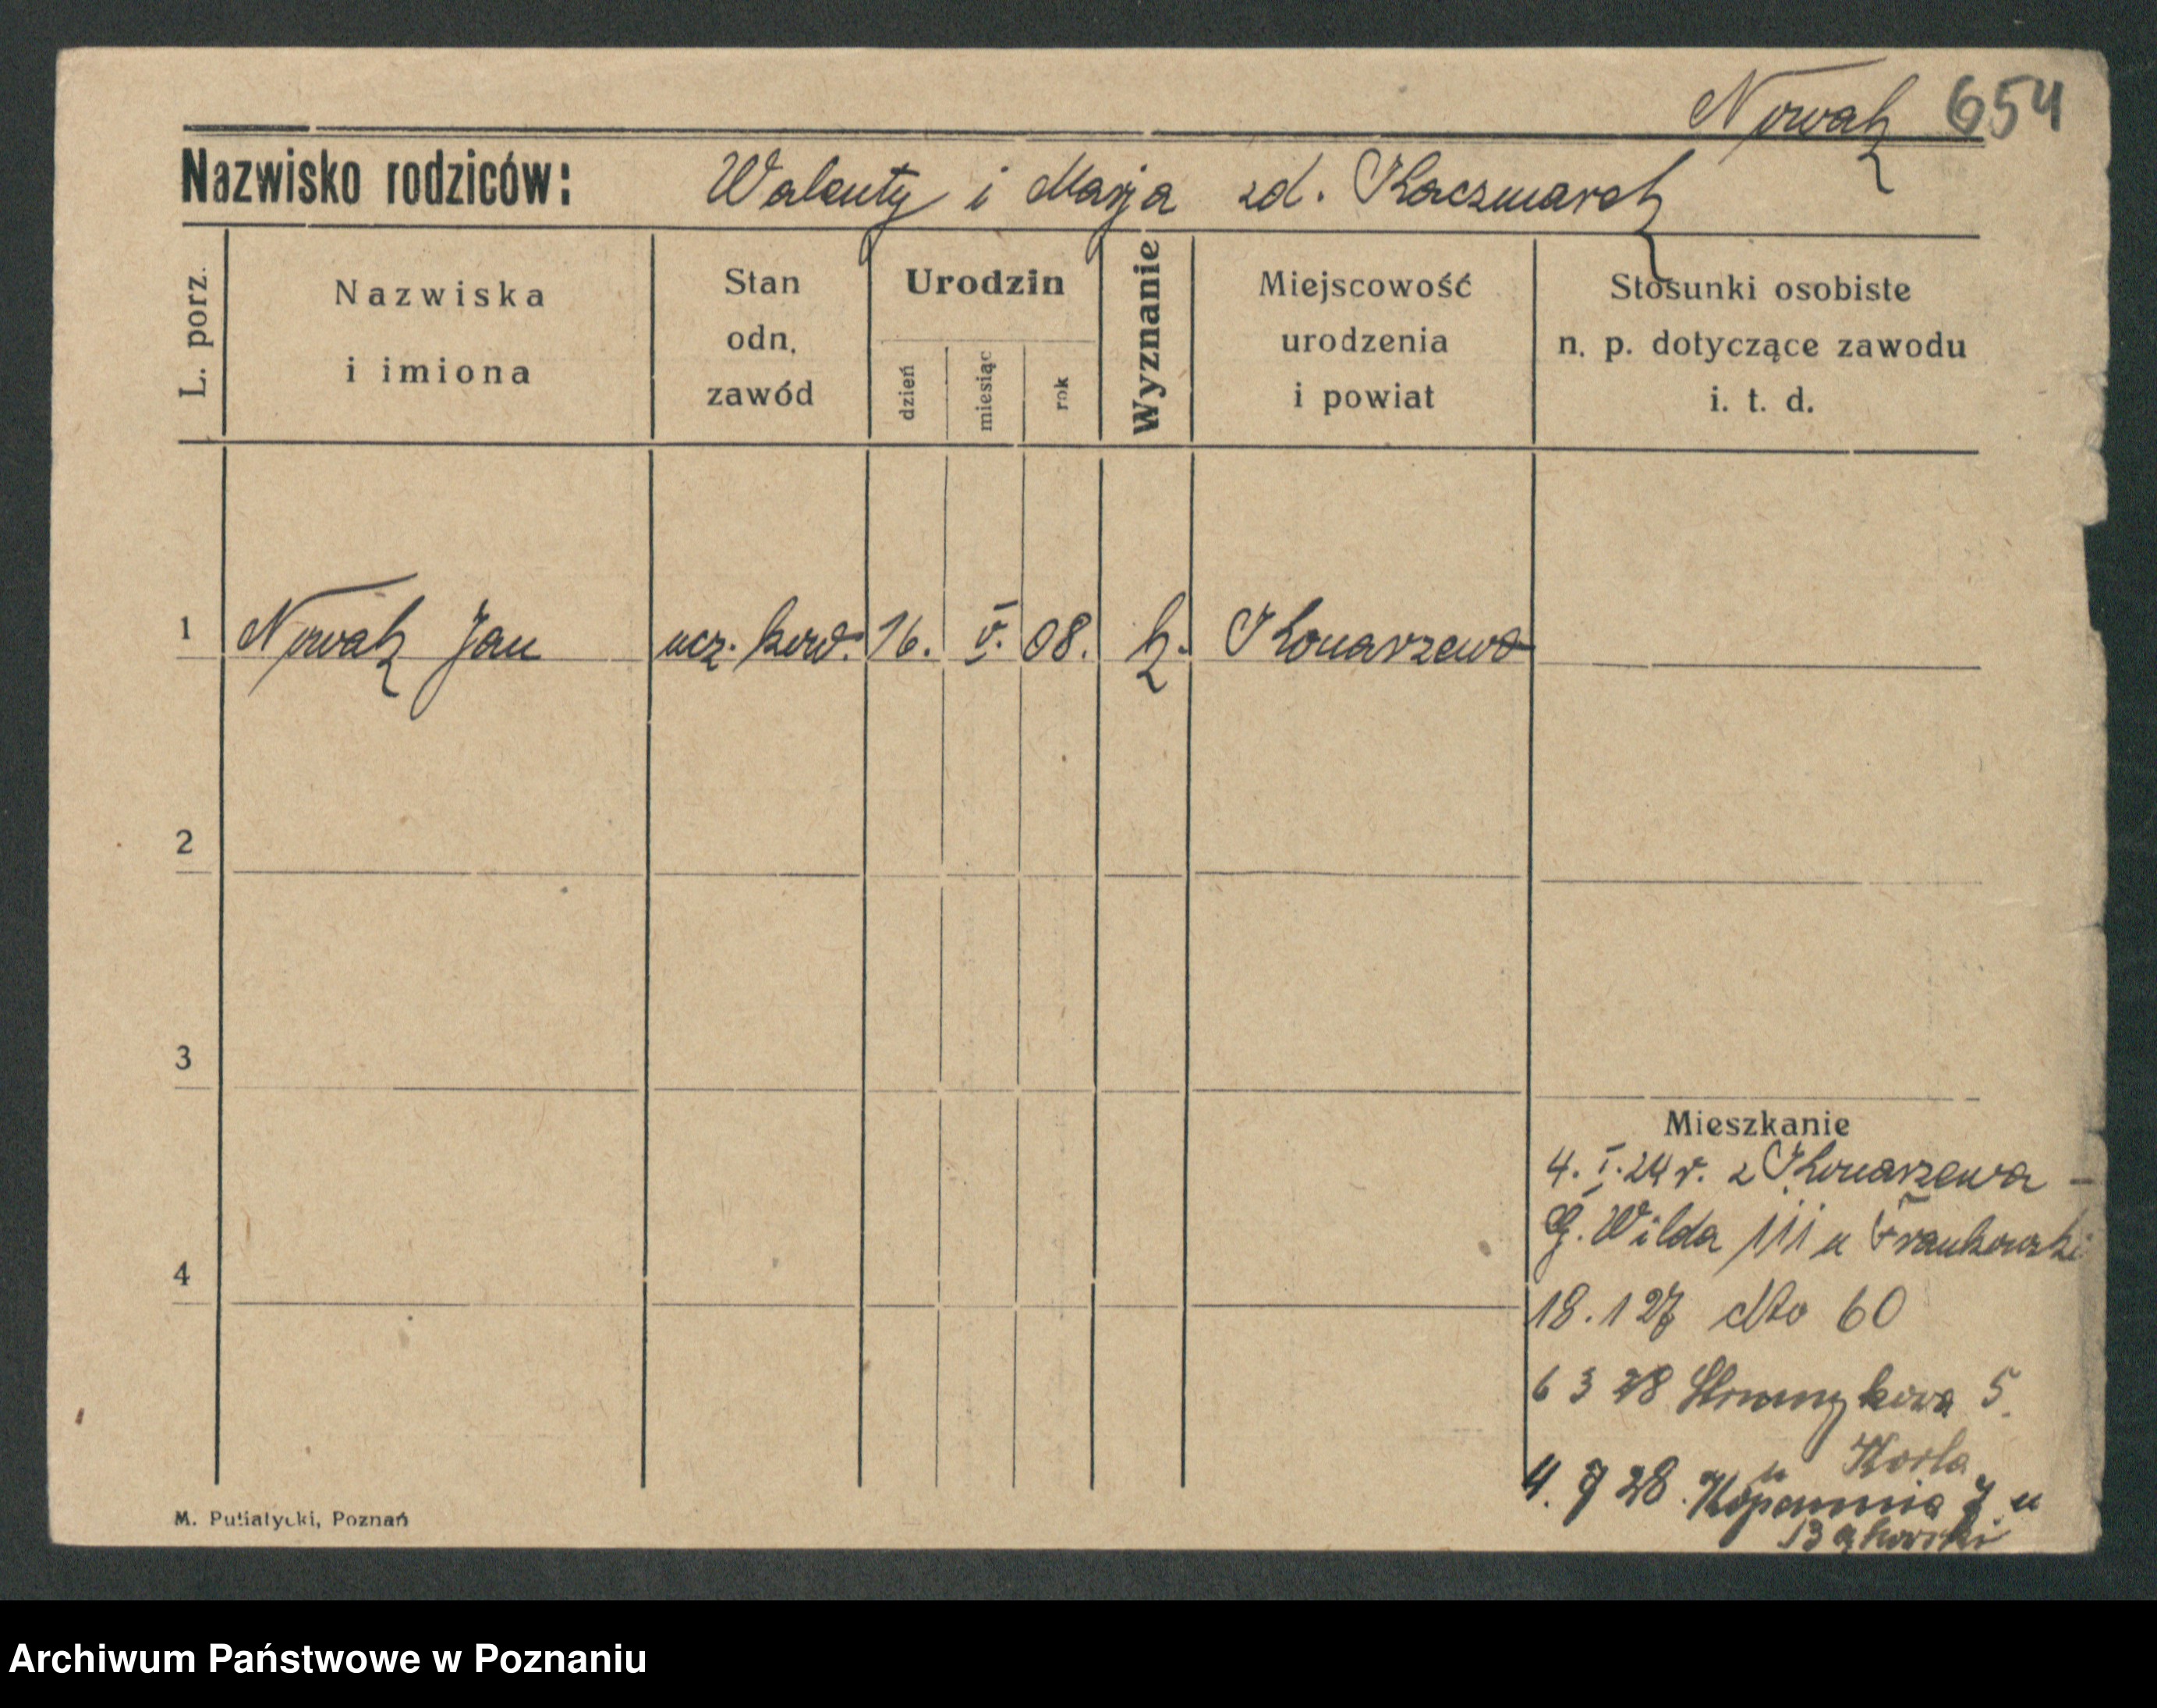 Nowak 654
Nazwisko rodziców: Walenty i Marja zd. Kaczmarek
L. porz.
Nazwiska
i imiona
Stan
odn.
zawód
Urodzin
dzień
miesiąc
rok
Wyznanie
Miejscowość
urodzenia
i powiat
Stosunki osobiste
n. p. dotyczące zawodu
i. t. d.
1 Nowak Jan ucz. kow. 16. V. 08. k. Konarzewo
2
3
4
Mieszkanie
4. I. 24 r. z Konarzewa –
G. Wilda 111 u Frankowski
18. 1 27 dto 60
6 3 28 5.
u
4. 9 28. Kopannia 7 u
Bąkowski
M. Putiatycki, Poznań
Archiwum Państwowe w Poznaniu